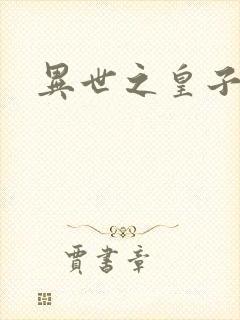 異世之皇子
賈書章